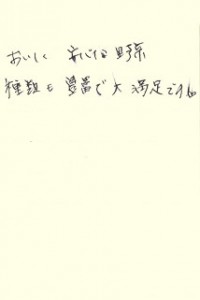 おいしく 野菜
種類も豊富で大満足です